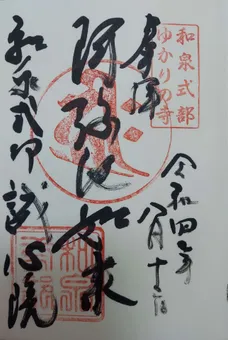 和泉式部
ゆかりの寺
奉拝
令和四年
八月十三日
阿弥陀如来
和泉式部 誠心院